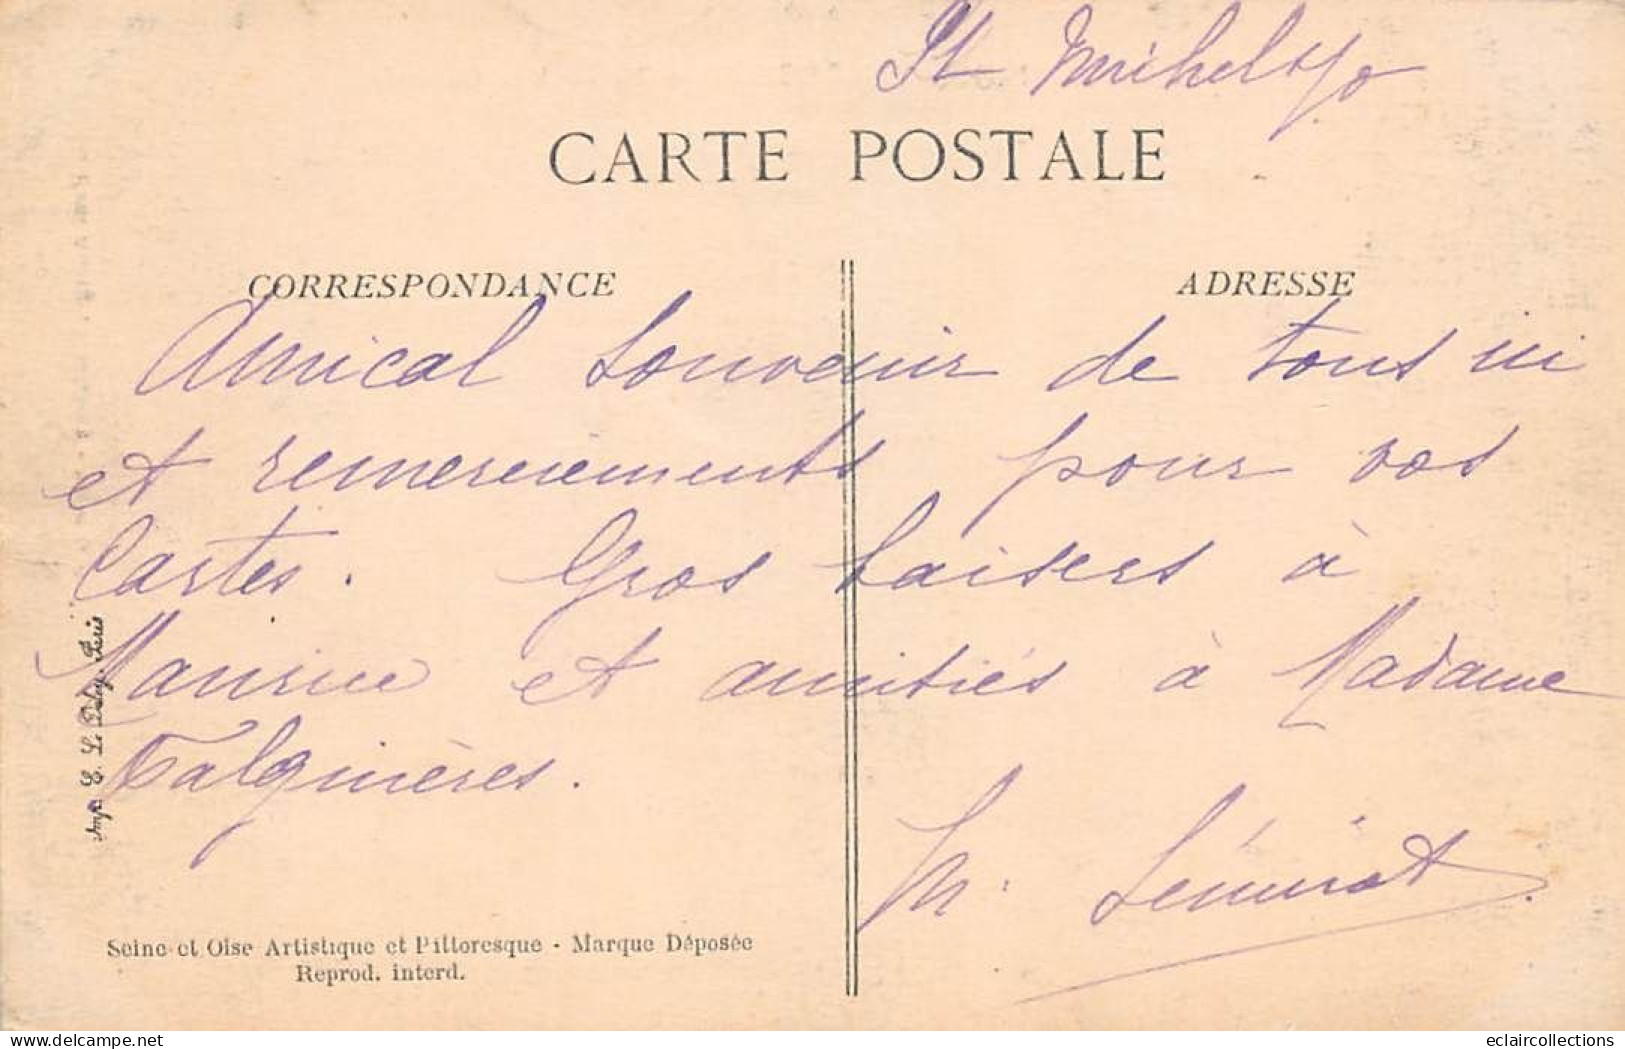 St Michel s/o
CARTE POSTALE
CORRESPONDANCE
ADRESSE
Amical souvenir de tous ici
et remerciements pour vos
Cartes. Gros baisers à
Maurice et amitiés à Madame
Falguières.
Imp. E. Le Deley, Paris
Seine-et-Oise Artistique et Pittoresque - Marque Déposée
Reprod. interd.
eclaircollections